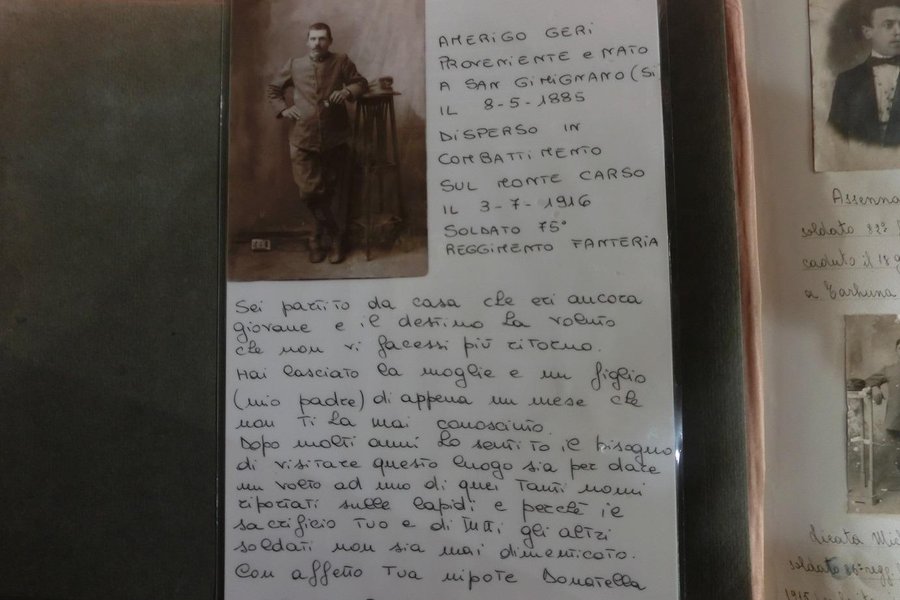 AMERIGO GERI
PROVENIENTE e NATO
A SAN GIMIGNANO (Si
IL 8-5-1885
DISPERSO IN
COMBATTIMENTO
SUL MONTE CARSO
IL 3-7-1916
SOLDATO 75°
REGGIMENTO FANTERIA
Sei partito da casa che eri ancora
giovane e il destino ha voluto
che non vi facessi più ritorno.
Hai lasciato la moglie e un figlio
(mio padre) di appena un mese che
non ti ha mai conosciuto.
Dopo molti anni ho sentito il bisogno
di visitare questo luogo sia per dare
un volto ad uno di quei tanti nomi
riportati sulle lapidi e perchè il
sacrificio tuo e di tutti gli altri
soldati non sia mai dimenticato.
Con affetto tua nipote Donatella
Assenna
soldato 82°
caduto il 18 g
a Tarhuna
Licata Mic
soldato regg
1915